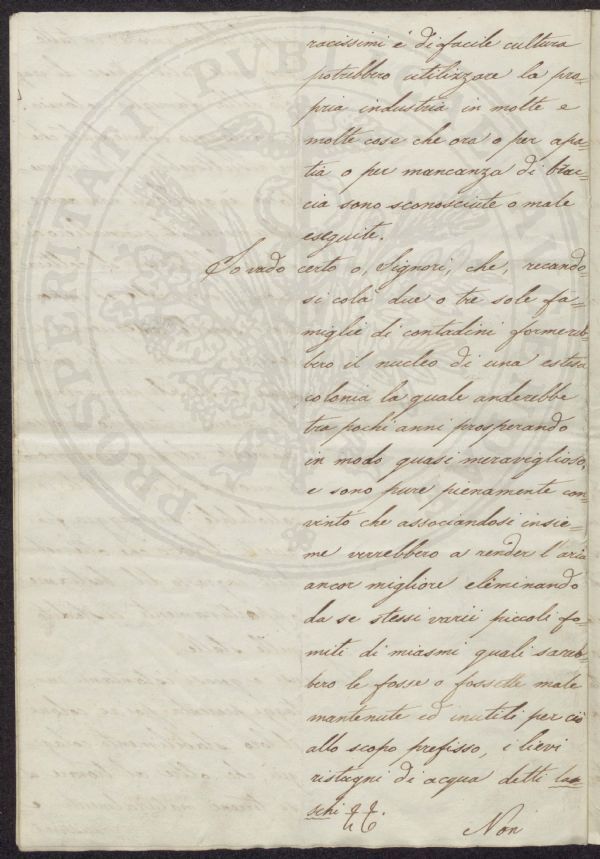 racissimi e di facile cultura
potrebbero utilizzare la pro=
pria industria in molte e
molte cose che ora o per apa=
tia o per mancanza di brac=
cia sono sconosciute o male
eseguite.
Io vado certo o, Signori, che, recando=
si colà due o tre sole fa=
miglie di contadini formereb=
bero il nucleo di una estesa
colonia la quale anderebbe
tra pochi anni prosperando
in modo quasi meraviglioso,
e sono pure pienamente con=
vinto che associandosi insie=
me verrebbero a render l'aria
ancor migliore eliminando
da se stessi varii piccoli fo=
miti di miasmi quali sareb=
bero le fosse o fossette male
mantenute ed inutili per ciò
allo scopo prefisso, i lievi
ristagni di acqua detti la=
schi
Non
PROSPERITATI PUBLICAE AUGENDAE